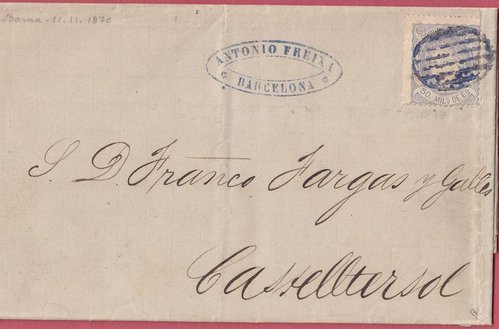 Barna - 11.11.1870
ANTONIO FREIXA
BARCELONA
50 MILS DE EO
S. D. Franco Fargas y Galles
Castelltersol